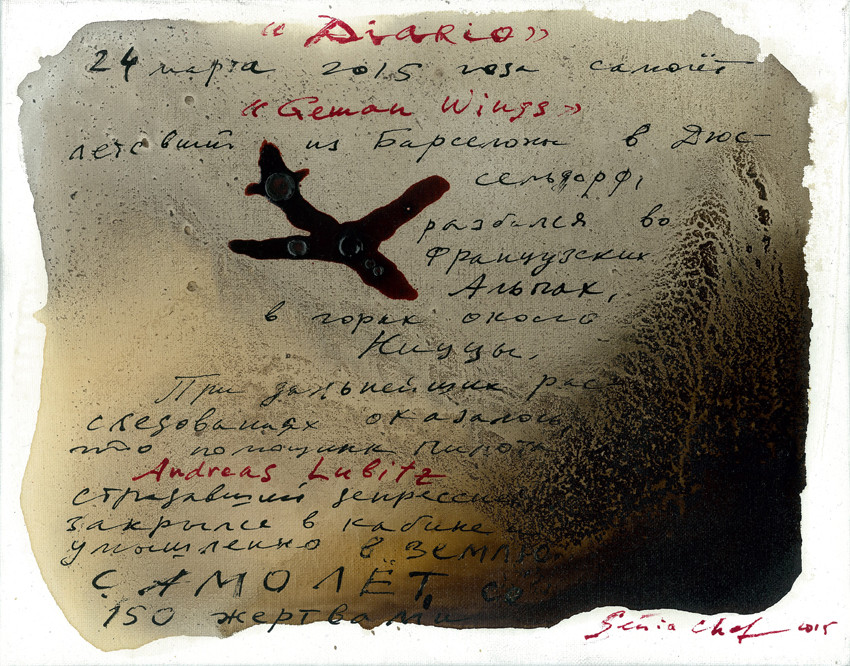 « Diario »
24 марта 2015 года самолёт
« Geman Wings »
летевший из Барселоны в Дюс-
сельдорф,
разбился во
Французских
Альпах,
в горах около
Ниццы.
При дальнейших рас-
следованиях оказалось,
что помощник пилота
Andreas Lubitz
страдавший депрессией
закрылся в кабине
умышленно в землю
САМОЛЁТ, со
150 жертвами
Genia Chef 2015